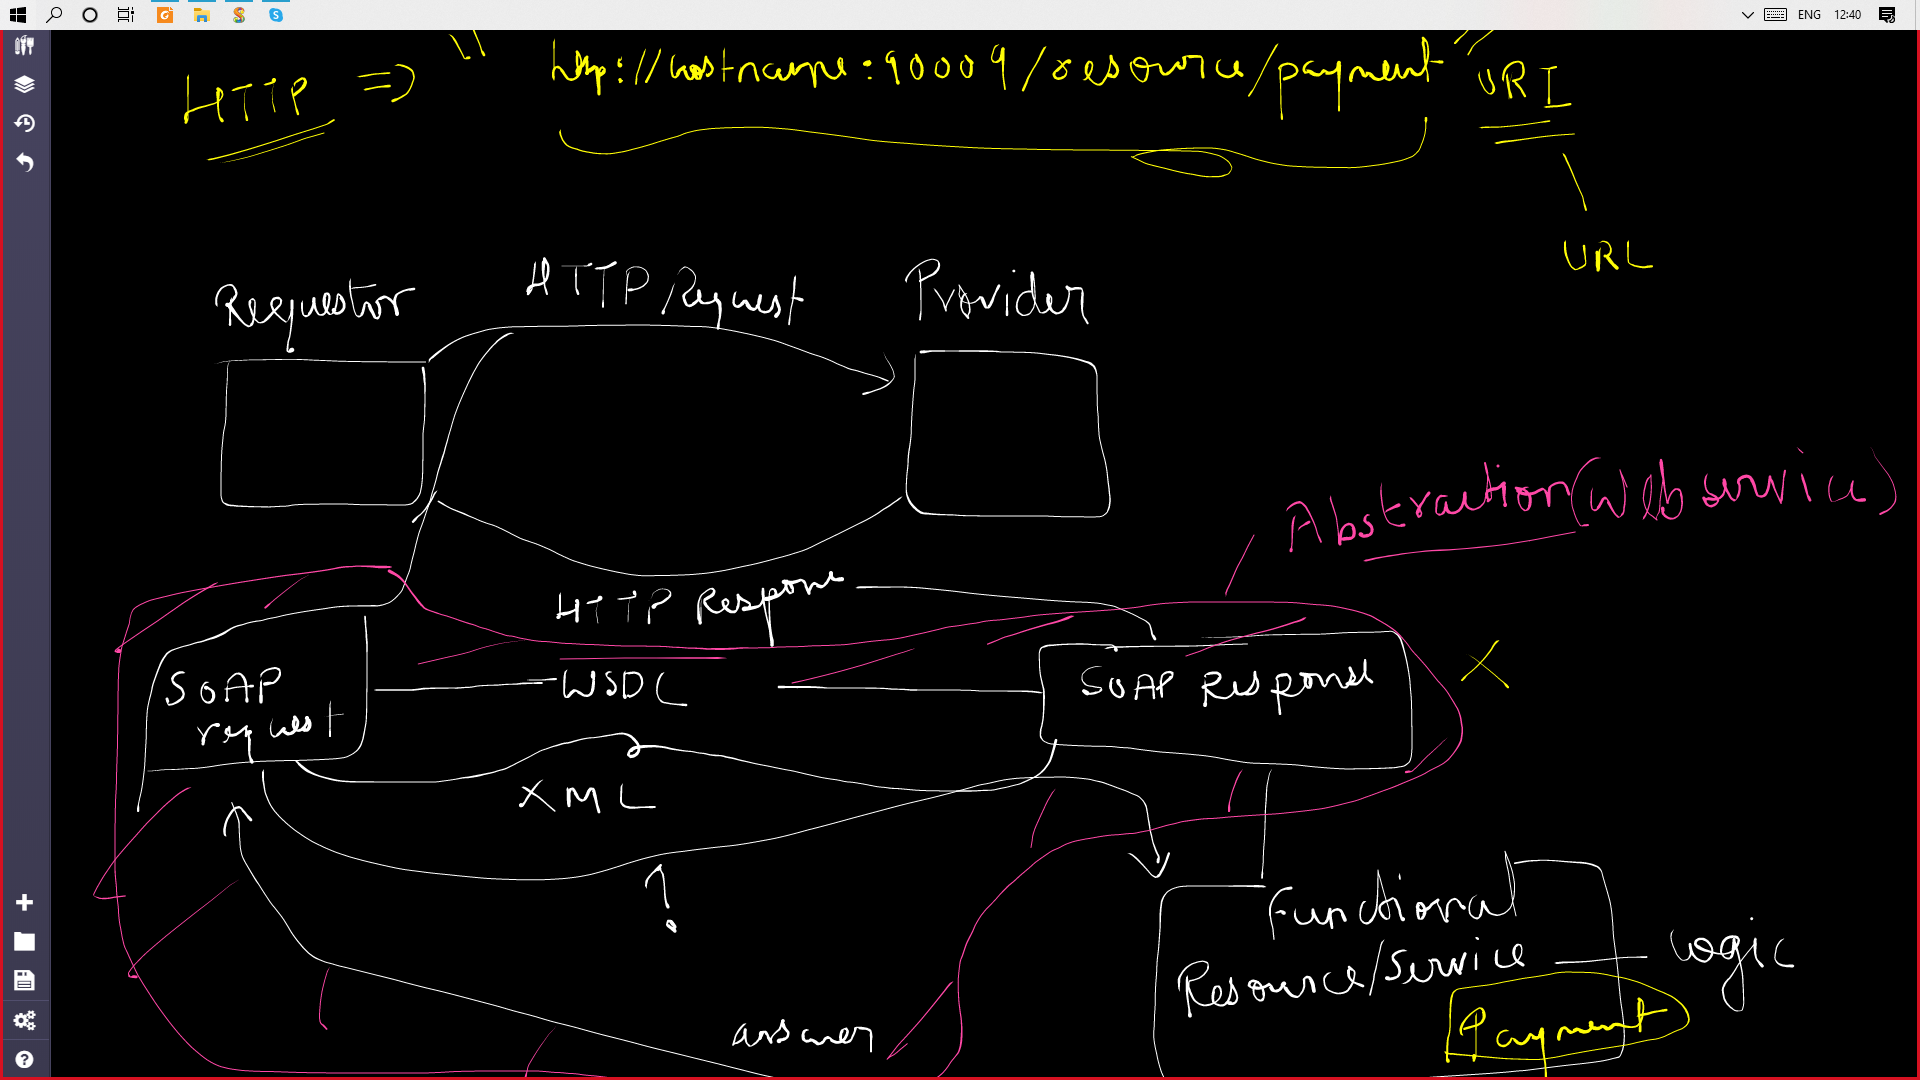 ENG 12:40
HTTP => " http://hostname:90009/resource/payment " URI
URL
Requestor HTTP Request Provider
Abstraction (Web service)
HTTP Response
SOAP request
WSDL
SOAP Response
X
XML
?
Functional Resource/Service
logic
Payment
answer